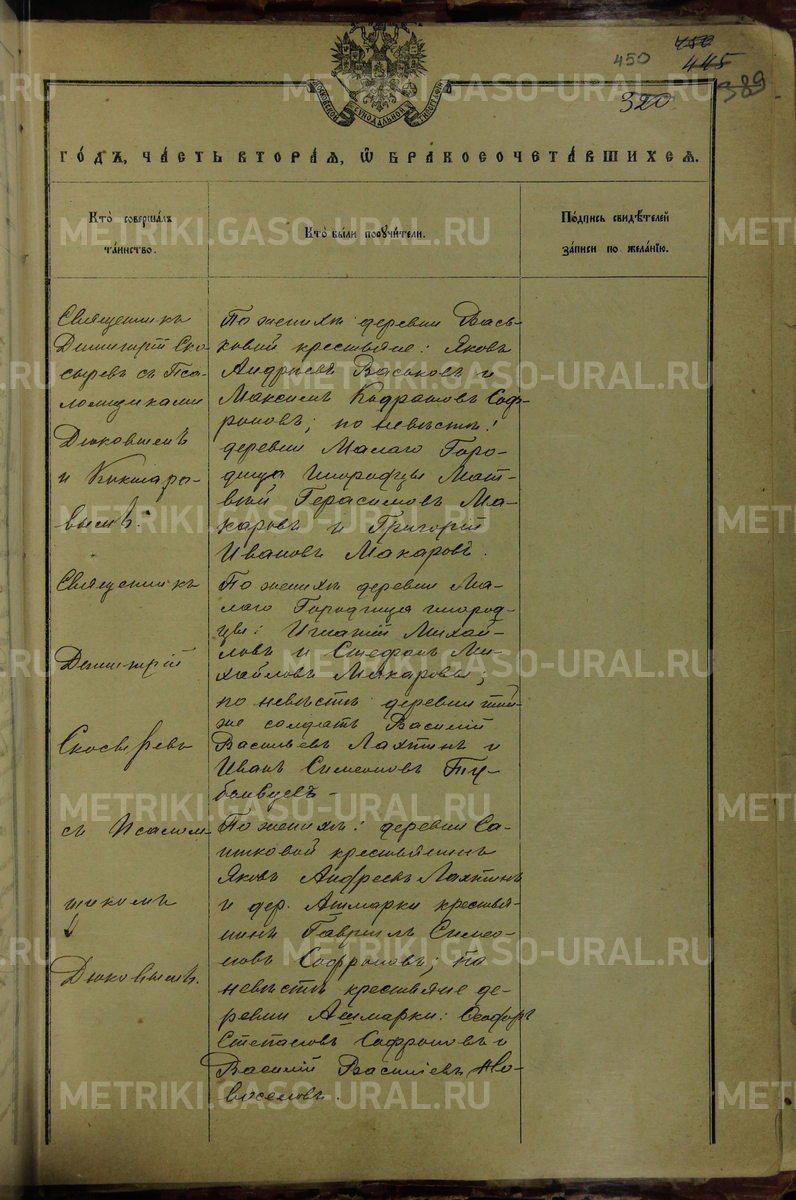 450
445
389
320
МОСКОВСКОЙ СѴНОДАЛЬНОЙ ТИПОГРАФІИ
ГО́ДЪ, ЧА́СТЬ ВТОРА́Я, Ѡ БРАКОСОЧЕТА́ВШИХСЯ.
Кто̀ соверша́лъ
та́инство.
Кто̀ бы́ли поручи́тели.
По́дпись свидѣ́телей
за́писи по жела́нію.
Священникъ
Димитрій Ско-
сыревъ съ Пса-
ломщиками
Дюковымъ
и
вымъ.
По женихѣ: деревни Вась-
ковой крестьяне: Яковъ
Андреевъ Васьковъ и
Максимъ Софро-
новъ; по невѣстѣ:
деревни Малаго Горо-
дища инородцы Мат-
вѣй Герасимовъ Ма-
каровъ и Григорій
Ивановъ Макаровъ.
Священникъ
Димитрій
Скосыревъ
съ Псалом-
щикомъ
Дюковымъ.
По женихѣ деревни Ма-
лаго Городища инород-
цы: Игнатій Михай-
ловъ и Стефанъ Ми-
хайловъ Макаровы;
по невѣстѣ деревни той-
же солдатъ Василій
Васильевъ Лахтинъ и
Иванъ Симеоновъ
По женихѣ: деревни Са-
шковой крестьянинъ
Яковъ Андреевъ Лахтинъ
и дер. Ашмарки крестья-
нинъ Гавріилъ Симео-
новъ Софроновъ; по
невѣстѣ крестьяне де-
ревни Ашмарки: Ѳеодоръ
Степановъ Софроновъ и
Василій Василіевъ Но-
воселовъ.
METRIKI.GASO-URAL.RU